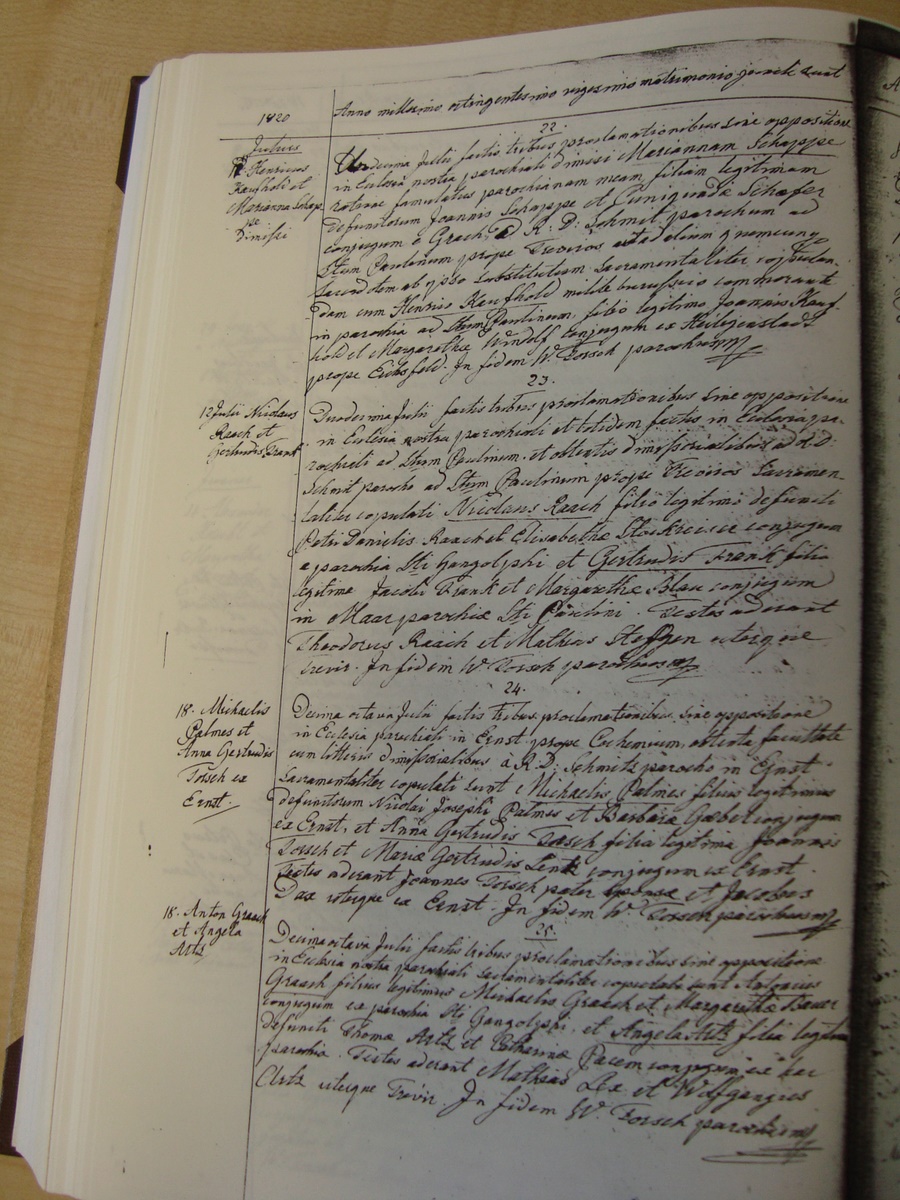 1820
Anno millesimo octingentesimo vigesimo matrimonio juncti sunt
Julius
11 Henricus
Kaufhold et
Marianna Schap-
pe
dimissi
22.
Undecima Julii factis tribus proclamationibus sine oppositione
in Ecclesia nostra parochiali dimisi Mariannam Schappe
ratione famulatus parochianam meam, filiam legitimam
defunctorum Joannis Schappe et Cunigundæ Schæfer
conjugum e Graach, R: D: Schmit parochum ad
Stum Paulinum prope Treviros aut ad alium quemcunq
Sacerdotem ab ipso substitutum Sacramentaliter copulan-
dam cum Henrico Kaufhold milite borussico commorante
in parochia ad Stum Paulinum, filio legitimo Joannis Kauf-
hold et Margarethæ Windolf conjugum ex Heiligenstadt
prope Eichsfeld. In fidem W. Torsch parochus mp
12 Julii Nicolaus
Raach et
Gertrudis Frank
23.
Duodecima Julii factis tribus proclamationibus sine oppositione
in Ecclesia nostra parochiali et totidem factis in Ecclesia pa-
rochiali ad Stum Paulinum, et obtentis dimissorialibus a R: D:
Schmit parocho ad Stum Paulinum prope Treviros Sacramen-
taliter copulati Nicolaus Raach filio legitimo defuncti
Petri Danielis Raach et Elisabethæ conjugum
e parochia Sti Gangolphi et Gertrudis Frank filia
legitima Jacobi Frank et Margarethæ Blau conjugum
in Maar parochiæ Sti Paulini. Testes aderant
Theodorus Raach et Mathias Steffen uterque
Trevir. In fidem W Torsch parochus mp
18. Michaelis
Palmes et
Anna Gertrudis
Torsch ex
Ernst.
24.
Decima octava Julii factis tribus proclamationibus sine oppositione
in Ecclesia parochiali in Ernst prope Cochemium, obtenta facultate
cum litteris dimissorialibus a R: D: Schmitz parocho in Ernst
Sacramentaliter copulati sunt Michaelis Palmes filius legitimus
defunctorum Nicolai Josephi Palmes et Barbaræ Gœbel conjugum
ex Ernst, et Anna Gertrudis Torsch filia legitima Joannis
Torsch et Mariæ Gertrudis Lenk conjugum ex Ernst.
Testes aderant Joannes Torsch pater sponsæ et Jacobus
Dax uterque ex Ernst. In fidem W. Torsch parochus mp
18. Anton Graach
et Angela
Artz
25.
Decima octava Julii factis tribus proclamationibus sine oppositione
in Ecclesia nostra parochiali Sacramentaliter copulati sunt Antonius
Graach filius legitimus Michaelis Graach et Margarethæ Bauer
conjugum ex parochia Sti Gangolphi, et Angela Artz filia legitima
defuncti Thomæ Artz et Catharinæ conjugum ex hac
parochia. Testes aderant Mathias Lex et Wolfgangus
Artz uterque Trevir. In fidem W. Torsch parochus mp